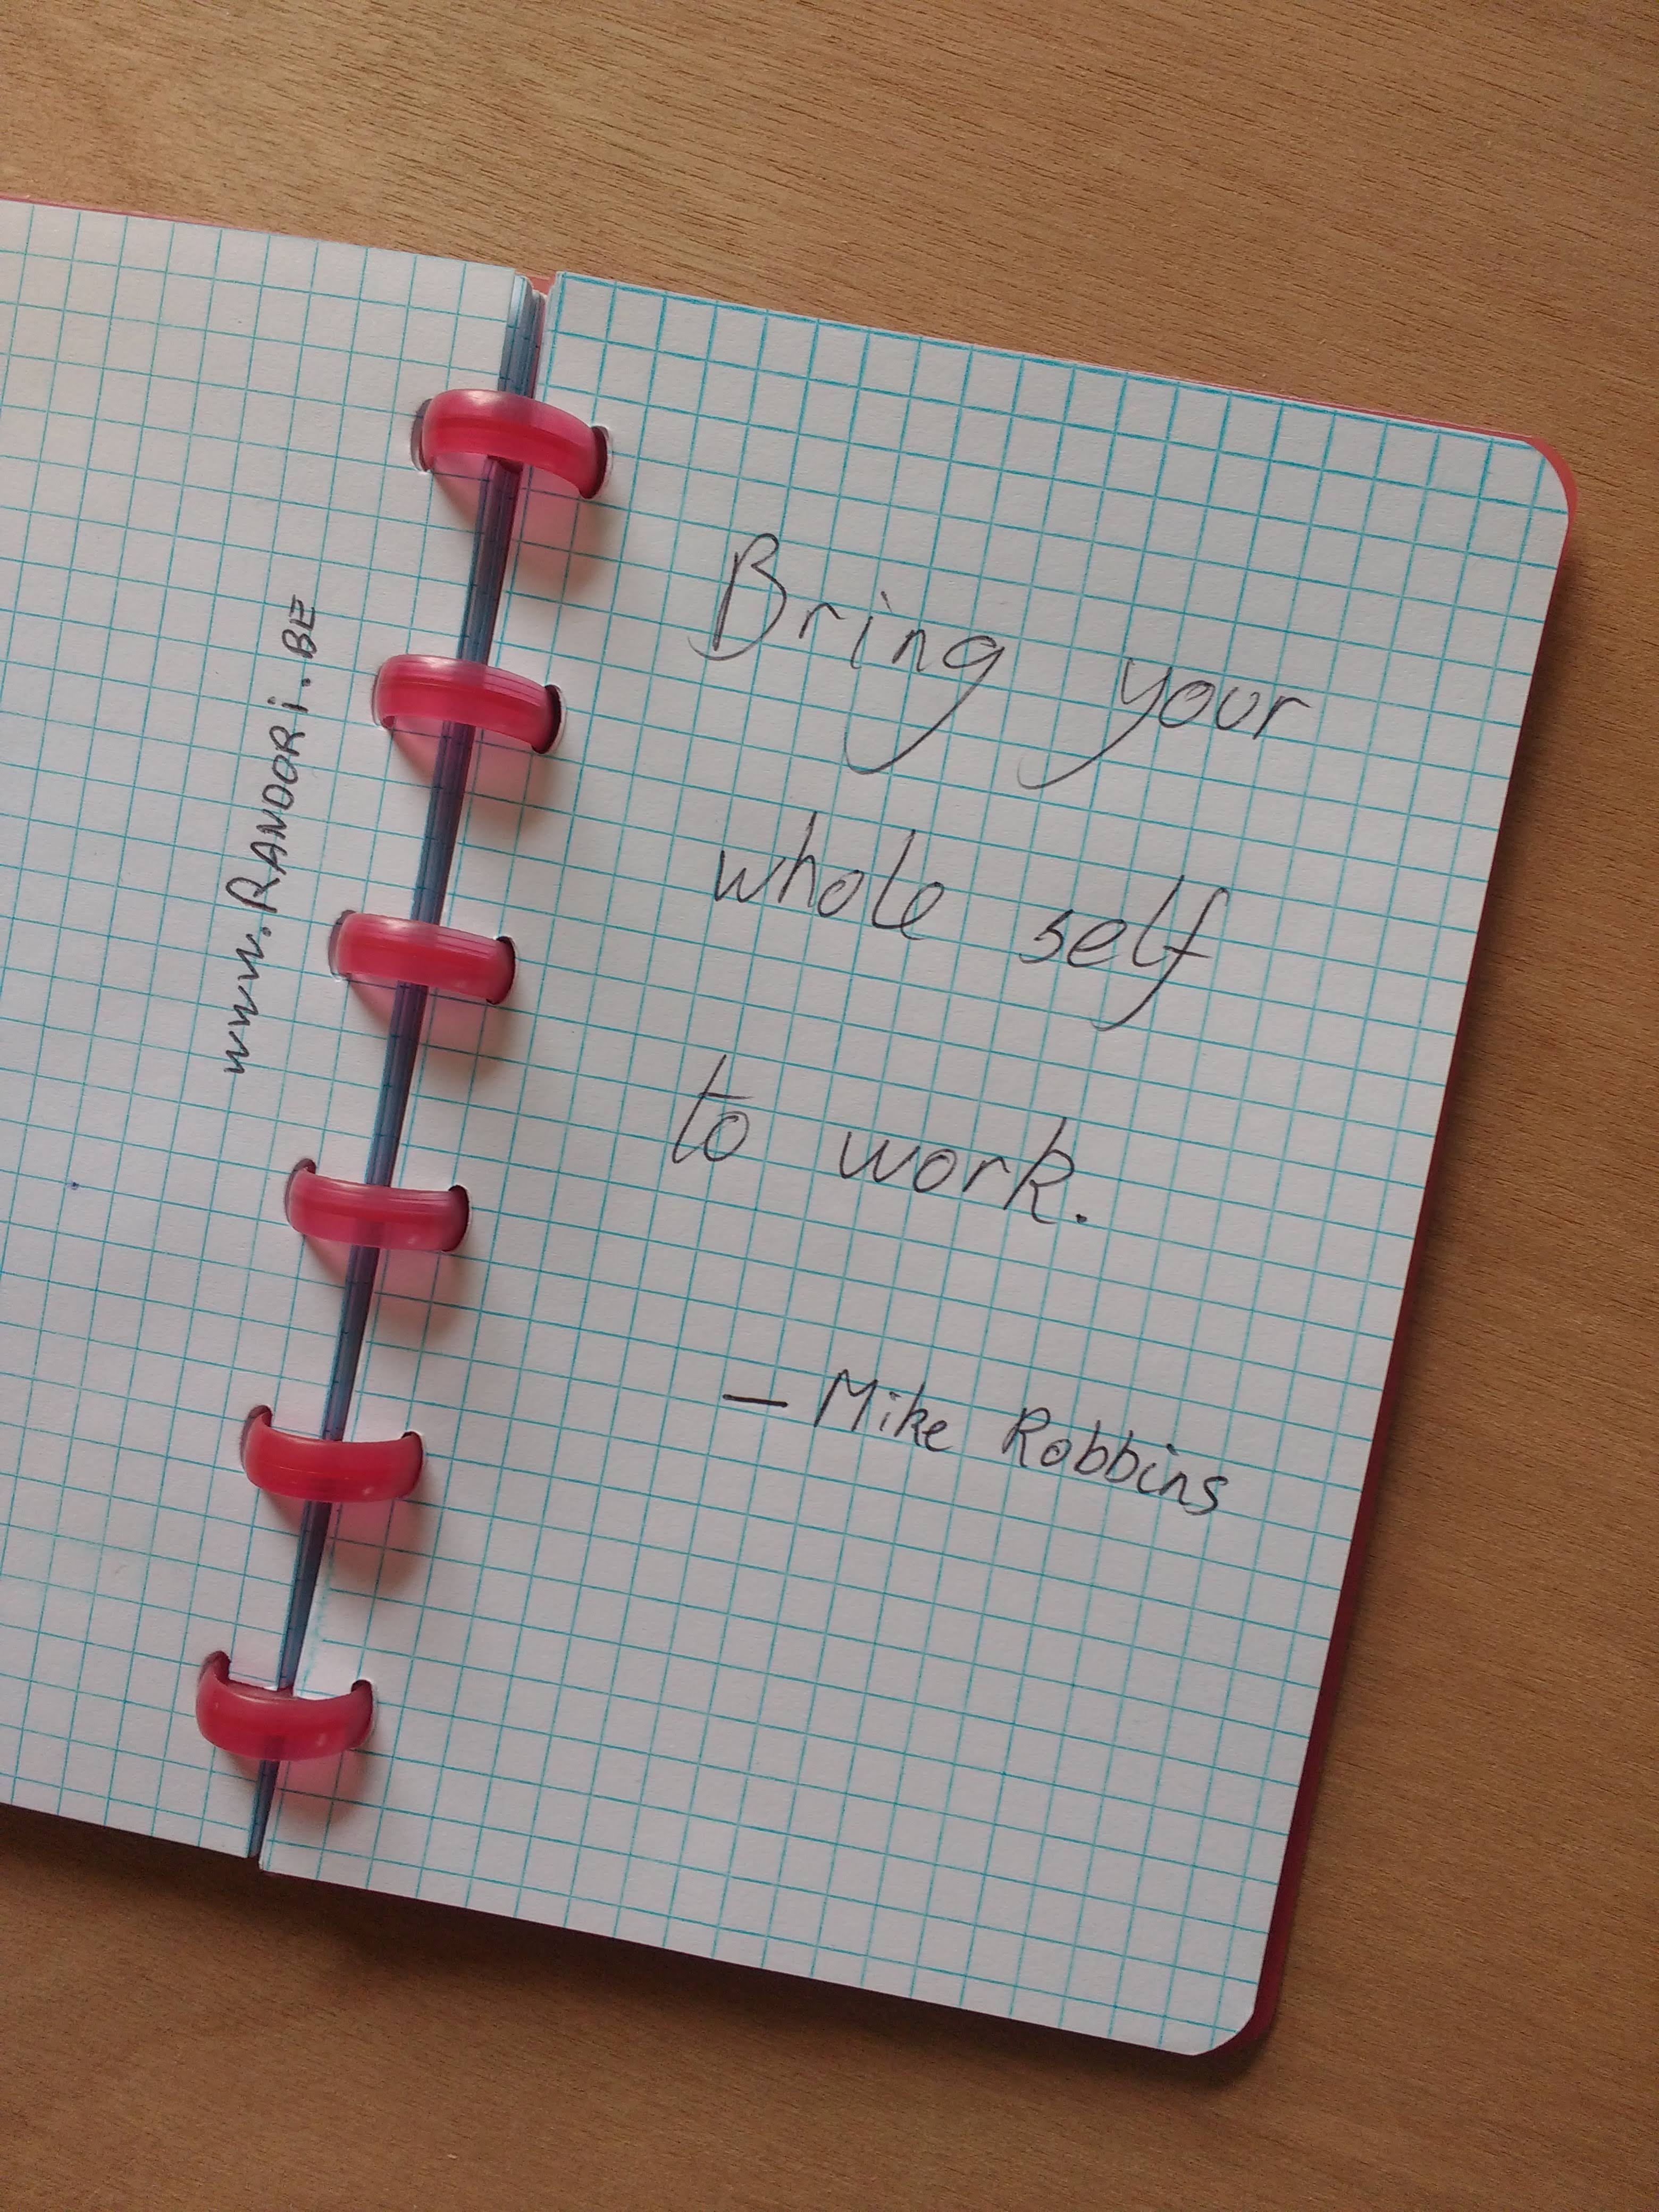 www.RANDORi.BE
Bring your
whole self
to work.
— Mike Robbins